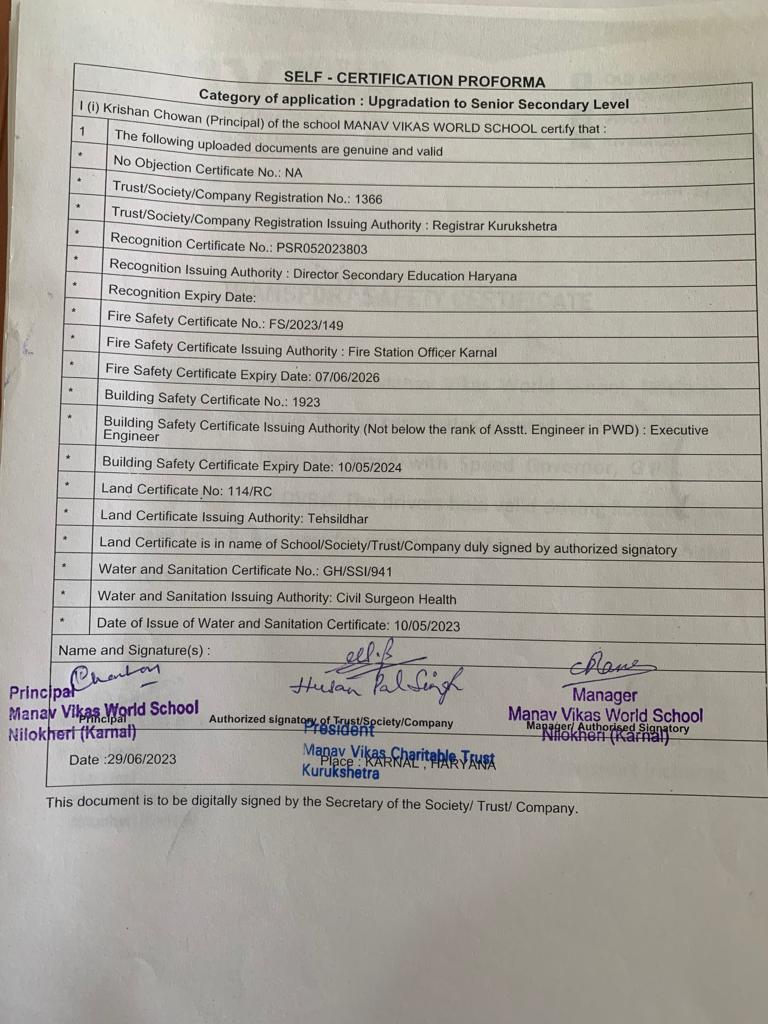 SELF - CERTIFICATION PROFORMA
Category of application : Upgradation to Senior Secondary Level
I (i) Krishan Chowan (Principal) of the school MANAV VIKAS WORLD SCHOOL certify that :
1 The following uploaded documents are genuine and valid
* No Objection Certificate No.: NA
* Trust/Society/Company Registration No.: 1366
* Trust/Society/Company Registration Issuing Authority : Registrar Kurukshetra
* Recognition Certificate No.: PSR052023803
* Recognition Issuing Authority : Director Secondary Education Haryana
* Recognition Expiry Date:
* Fire Safety Certificate No.: FS/2023/149
* Fire Safety Certificate Issuing Authority : Fire Station Officer Karnal
* Fire Safety Certificate Expiry Date: 07/06/2026
* Building Safety Certificate No.: 1923
* Building Safety Certificate Issuing Authority (Not below the rank of Asstt. Engineer in PWD) : Executive
Engineer
* Building Safety Certificate Expiry Date: 10/05/2024
* Land Certificate No: 114/RC
* Land Certificate Issuing Authority: Tehsildhar
* Land Certificate is in name of School/Society/Trust/Company duly signed by authorized signatory
* Water and Sanitation Certificate No.: GH/SSI/941
* Water and Sanitation Issuing Authority: Civil Surgeon Health
* Date of Issue of Water and Sanitation Certificate: 10/05/2023
Name and Signature(s) :
Husan Pal Singh
Principal
Manav Vikas World School
Nilokheri (Karnal)
Principal
Authorized signatory of Trust/Society/Company
President
Manav Vikas Charitable Trust
Kurukshetra
Manager
Manav Vikas World School
Nilokheri (Karnal)
Manager/ Authorised Signatory
Date :29/06/2023
Place : KARNAL , HARYANA
This document is to be digitally signed by the Secretary of the Society/ Trust/ Company.